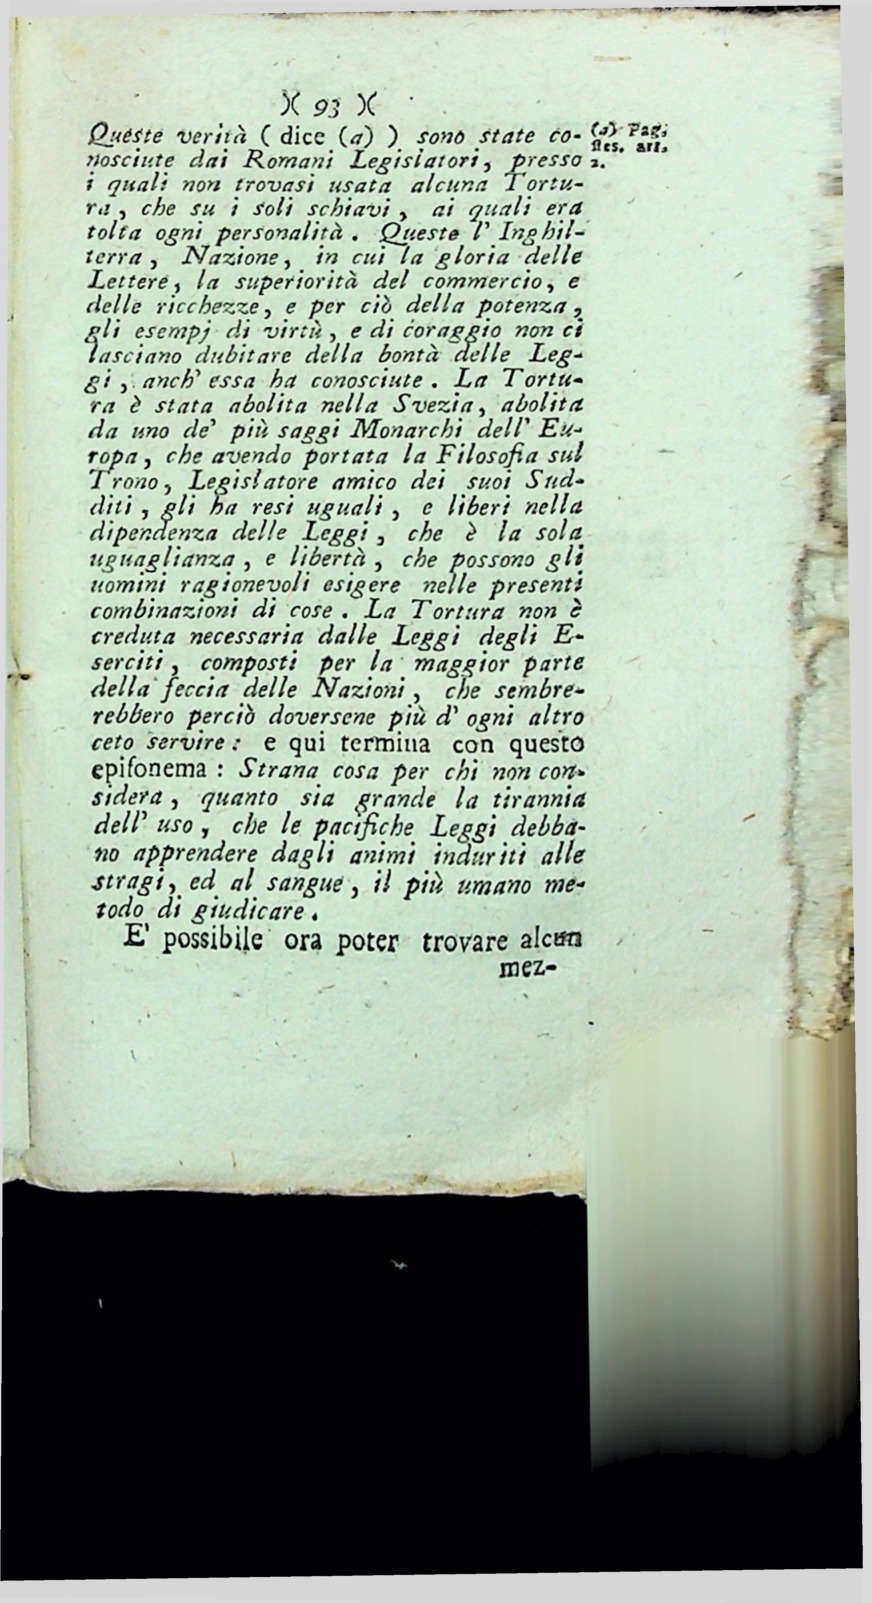 )( 93 )(
Queste verità ( dice (a) ) sono state co-
nosciute dai Romani Legislatori, presso
i quali non trovasi usata alcuna Tortu-
ra, che su i soli schiavi, ai quali era
tolta ogni personalità. Queste l' Inghil-
terra, Nazione, in cui la gloria delle
Lettere, la superiorità del commercio, e
delle ricchezze, e per ciò della potenza,
gli esempj di virtù, e di coraggio non ci
lasciano dubitare della bontà delle Leg-
gi, anch' essa ha conosciute. La Tortu-
ra è stata abolita nella Svezia, abolita
da uno de' più saggi Monarchi dell' Eu-
ropa, che avendo portata la Filosofia sul
Trono, Legislatore amico dei suoi Sud-
diti, gli ha resi uguali, e liberi nella
dipendenza delle Leggi, che è la sola
uguaglianza, e libertà, che possono gli
uomini ragionevoli esigere nelle presenti
combinazioni di cose. La Tortura non è
creduta necessaria dalle Leggi degli E-
serciti, composti per la maggior parte
della feccia delle Nazioni, che sembre-
rebbero perciò doversene più d' ogni altro
ceto servire: e qui termina con questo
epifonema: Strana cosa per chi non con-
sidera, quanto sia grande la tirannia
dell' uso, che le pacifiche Leggi debba-
no apprendere dagli animi induriti alle
stragi, ed al sangue, il più umano me-
todo di giudicare.
E' possibile ora poter trovare alcun
mez-
(a) Pag.
art.
2.